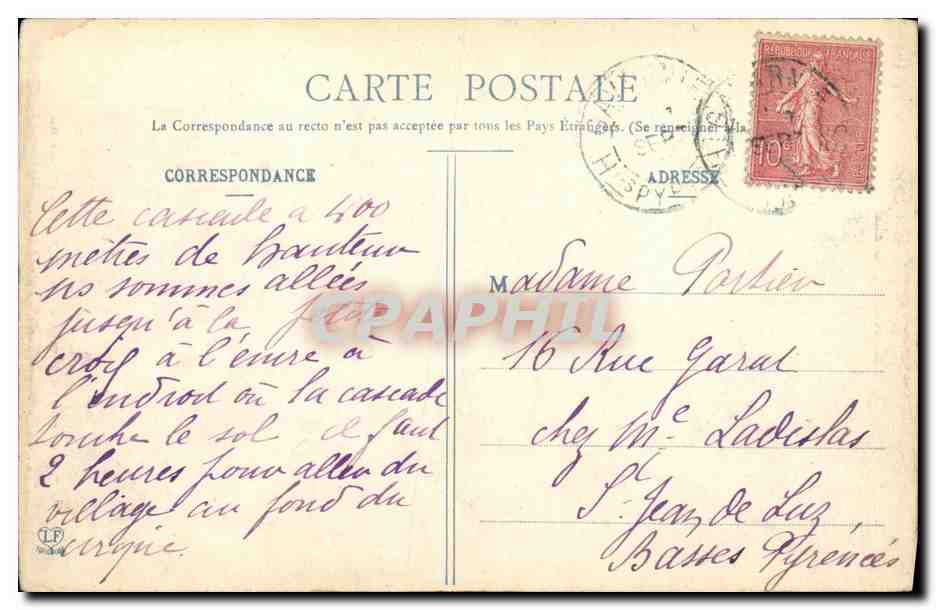 CARTE POSTALE
La Correspondance au recto n'est pas acceptée par tous les Pays Étrangers. (Se renseigner à la
CORRESPONDANCE
Cette cascade a 400
mètres de hauteur
ns sommes allées
jusqu'à la petite
croix à l'encre à
l'endroit où la cascade
touche le sol il faut
2 heures pour aller du
village au fond du
cirque.
LF
RÉPUBLIQUE FRANÇAISE
10c
SEPT
HTES PYR
ADRESSE
Madame Portier
16 Rue Garat
chez Me Ladislas
St Jean de Luz
Basses Pyrénées
CPAPHIL